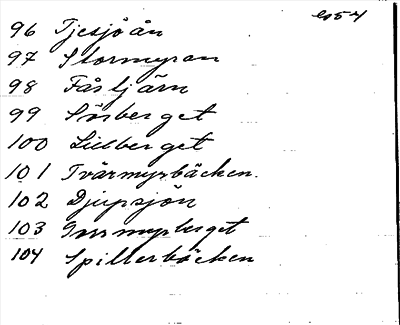 96 Tjesjöån
97 Stormyran
98 Fåstjärn
99 Sörberget
100 Lillberget
101 Tvärmyrbäcken.
102 Djupsjön
103
104 Spillerbäcken